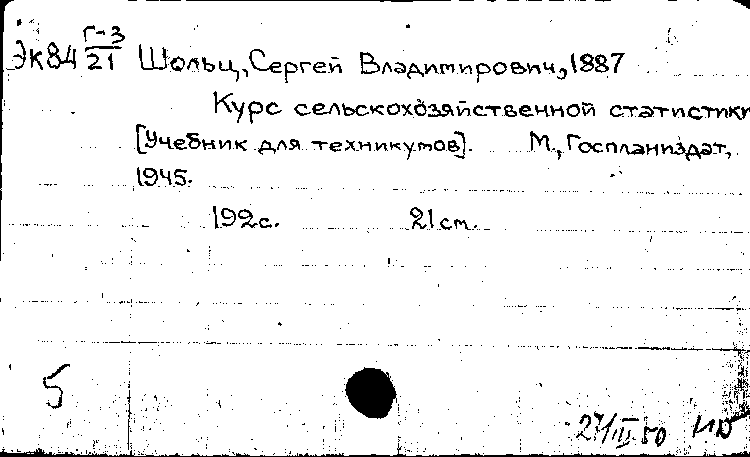 Эк84 Г-3/21 Шольц, Сергей Владимирович, 1887
Курс сельскохозяйственной статистики
[Учебник для техникумов]. М., Госпланиздат,
1945.
192 с. 21 см.
5
27/III 50